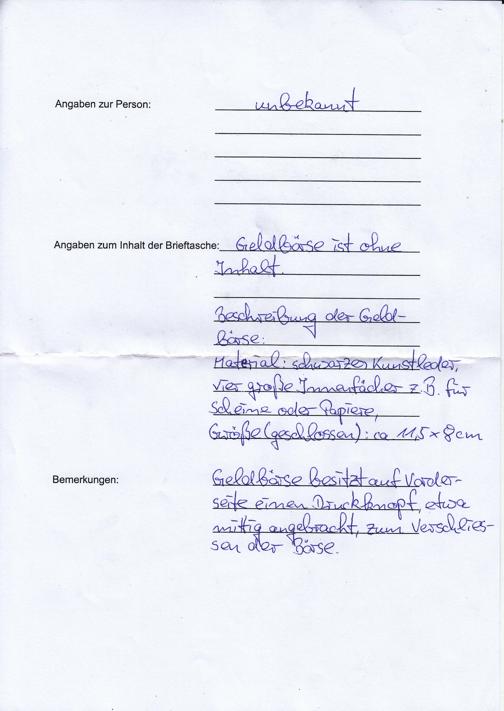 Angaben zur Person: unbekannt
Angaben zum Inhalt der Brieftasche: Geldbörse ist ohne
Inhalt.
Beschreibung der Geld-
börse:
Material: schwarzes Kunstleder,
vier große Innenfächer z.B. für
Scheine oder Papiere,
Größe (geschlossen): ca 11,5 x 8 cm
Bemerkungen: Geldbörse besitzt auf Vorder-
seite einen Druckknopf, etwa
mittig angebracht, zum Verschlies-
sen der Börse.